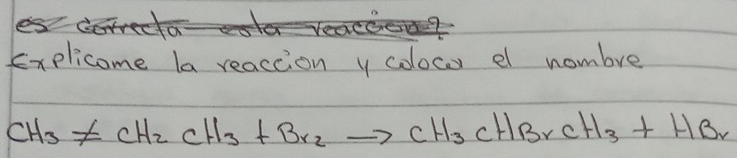 es correcta esta reaccion?
Explicame la reaccion y colocar el nombre
CH3 ≠ CH2 CH3 + Br2 → CH3 CHBr CH3 + HBr